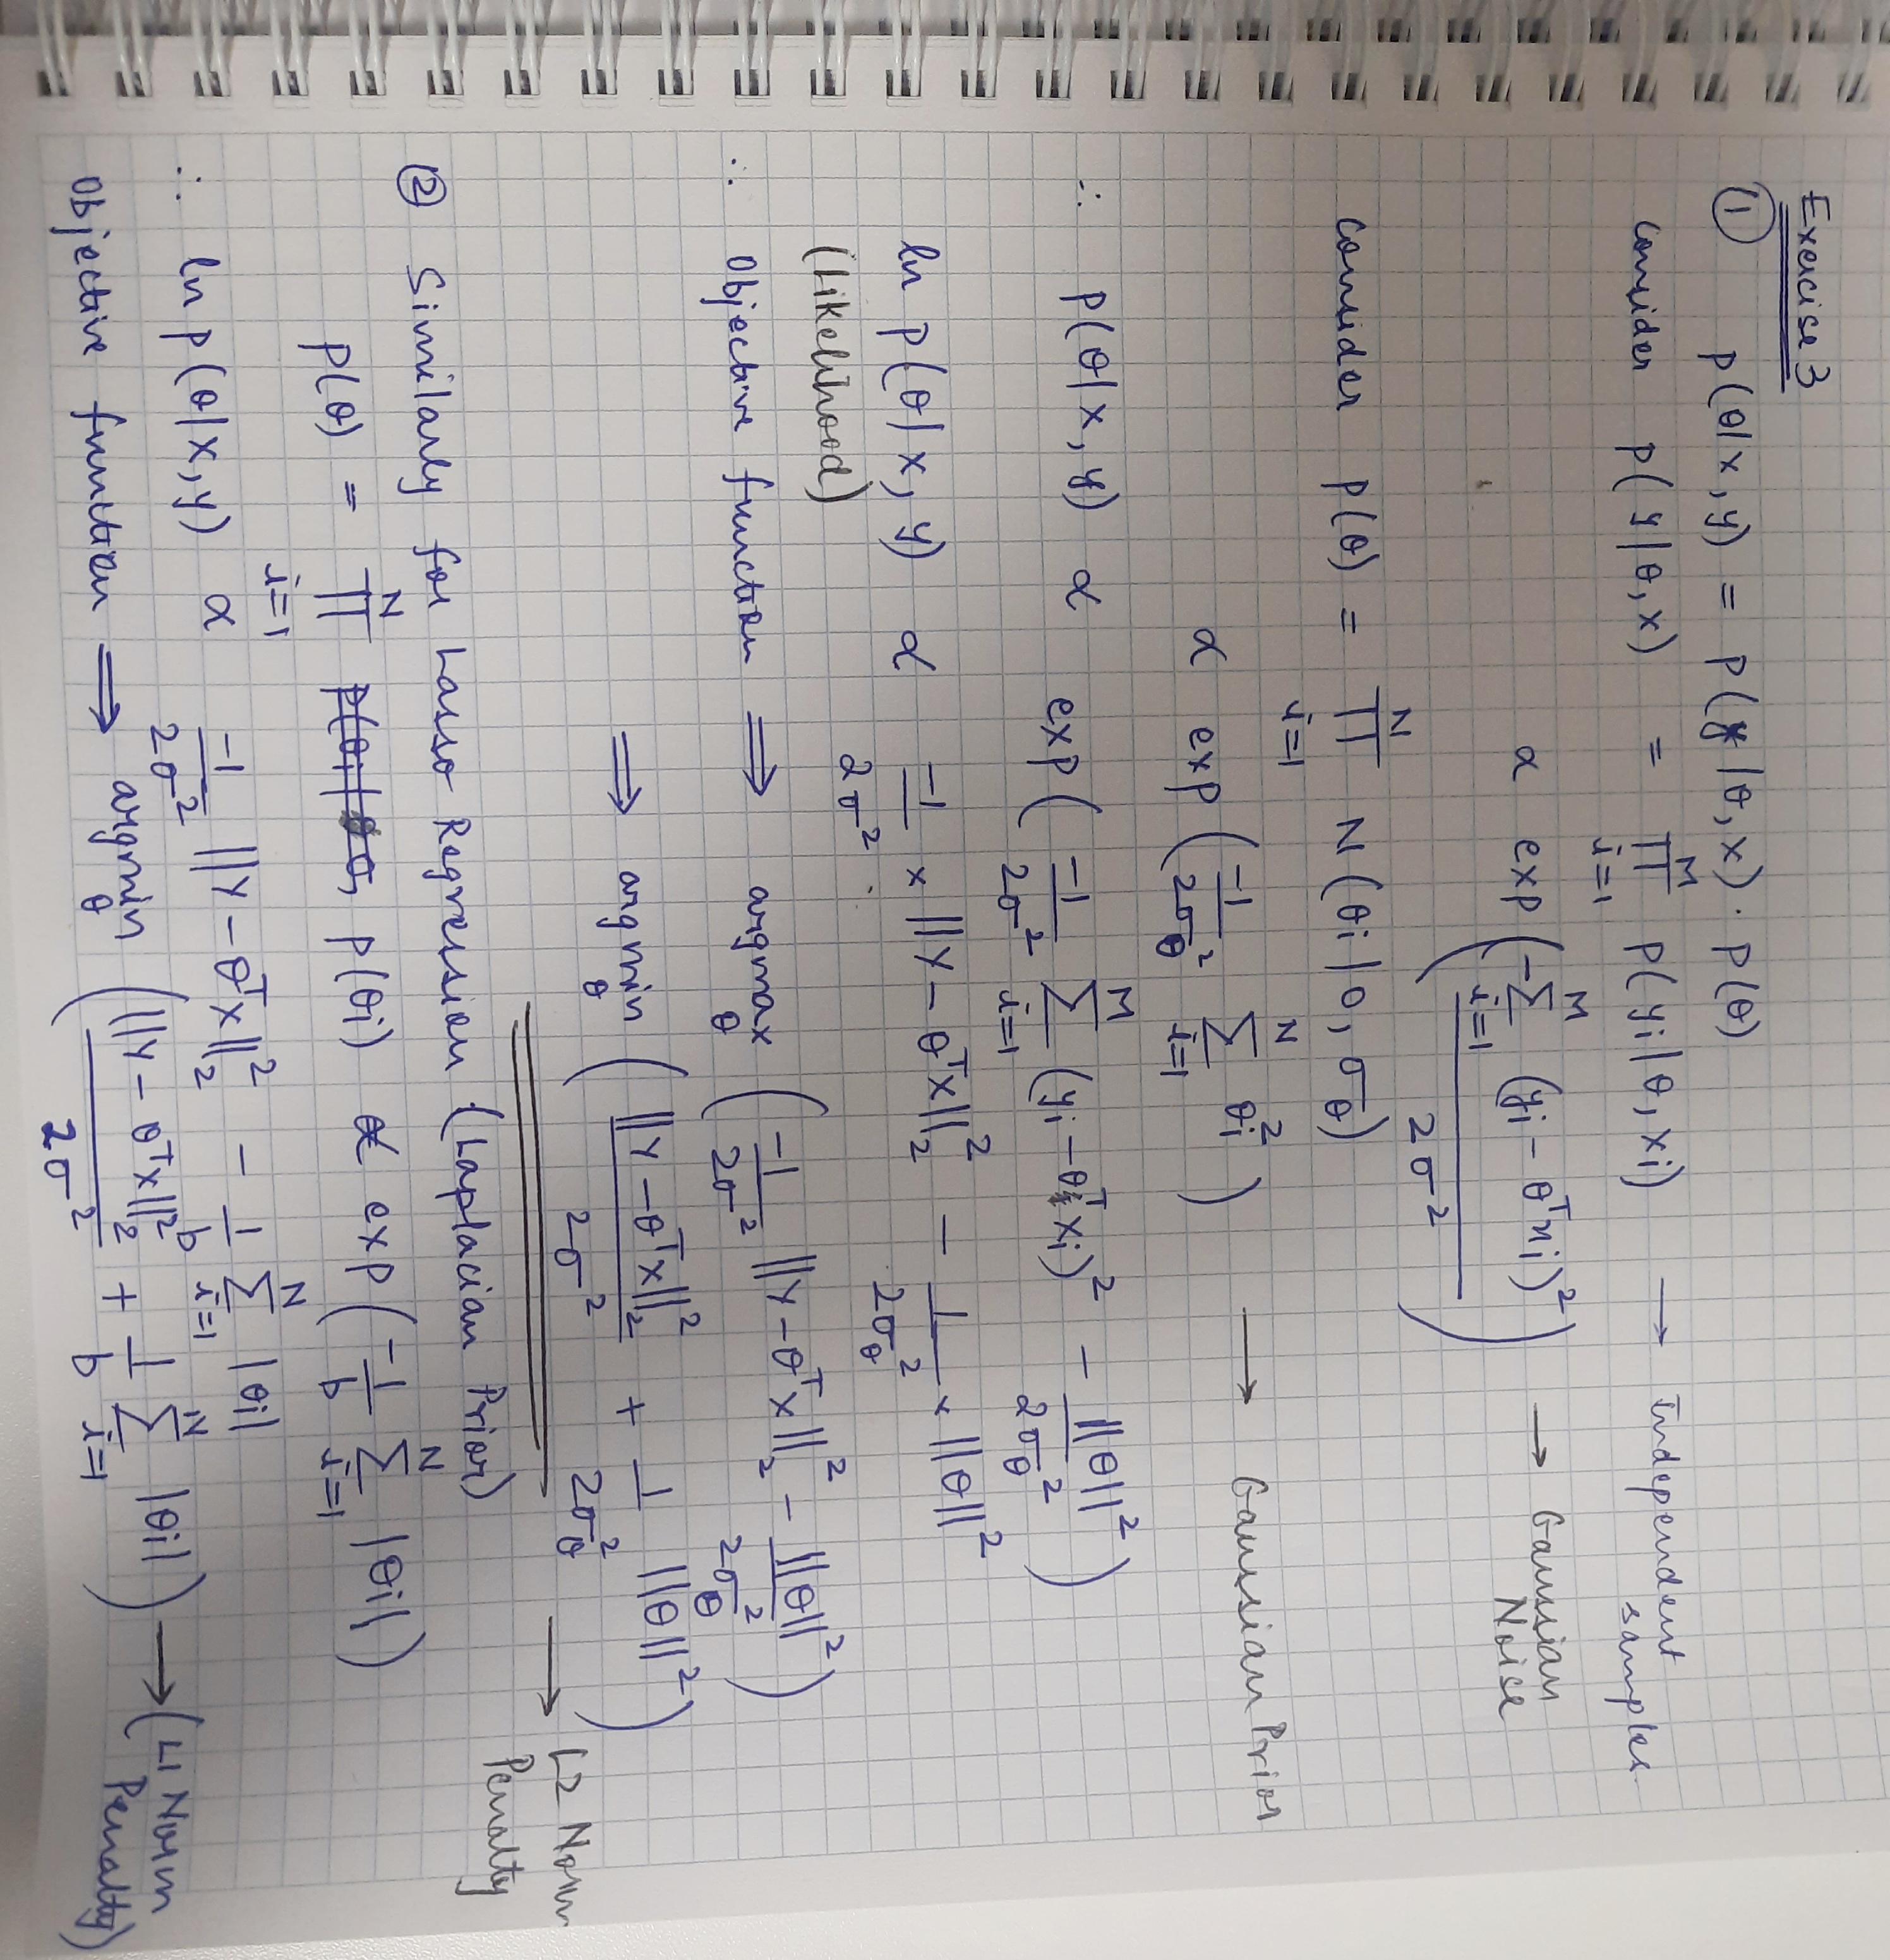 Exercise 3
① p(θ|x, y) = p(y|θ, x) · p(θ)
Consider p(y|θ, x) = ∏_{i=1}^{M} p(yi|θ, xi) → Independent samples.
∝ exp(-∑_{i=1}^{M} (yi - θ^T xi)^2 / 2σ^2) → Gaussian Noise
Consider p(θ) = ∏_{i=1}^{N} N(θi|0, σ_θ)
∝ exp(-1/2σ_θ^2 ∑_{i=1}^{N} θi^2) → Gaussian Prior
∴ p(θ|x, y) ∝ exp(-1/2σ^2 ∑_{i=1}^{M} (yi - θ^T xi)^2 - ||θ||^2/2σ_θ^2)
ln p(θ|x, y) ∝ -1/2σ^2 × ||Y - θ^T X||_2^2 - 1/2σ_θ^2 × ||θ||^2
(Likelihood)
∴ Objective function ⟹ argmax_θ (-1/2σ^2 ||Y - θ^T X||_2^2 - ||θ||^2/2σ_θ^2)
⟹ argmin_θ (||Y - θ^T X||_2^2/2σ^2 + 1/2σ_θ^2 ||θ||^2) → L2 Norm Penalty
② Similarly for Lasso Regression (Laplacian Prior)
p(θ) = ∏_{i=1}^{N} p(θi) ∝ exp(-1/b ∑_{i=1}^{N} |θi|)
∴ ln p(θ|X, y) ∝ -1/2σ^2 ||Y - θ^T X||_2^2 - 1/b ∑_{i=1}^{N} |θi|
Objective function ⟹ argmin_θ (||Y - θ^T X||_2^2/2σ^2 + 1/b ∑_{i=1}^{N} |θi|) → (L1 Norm Penalty)